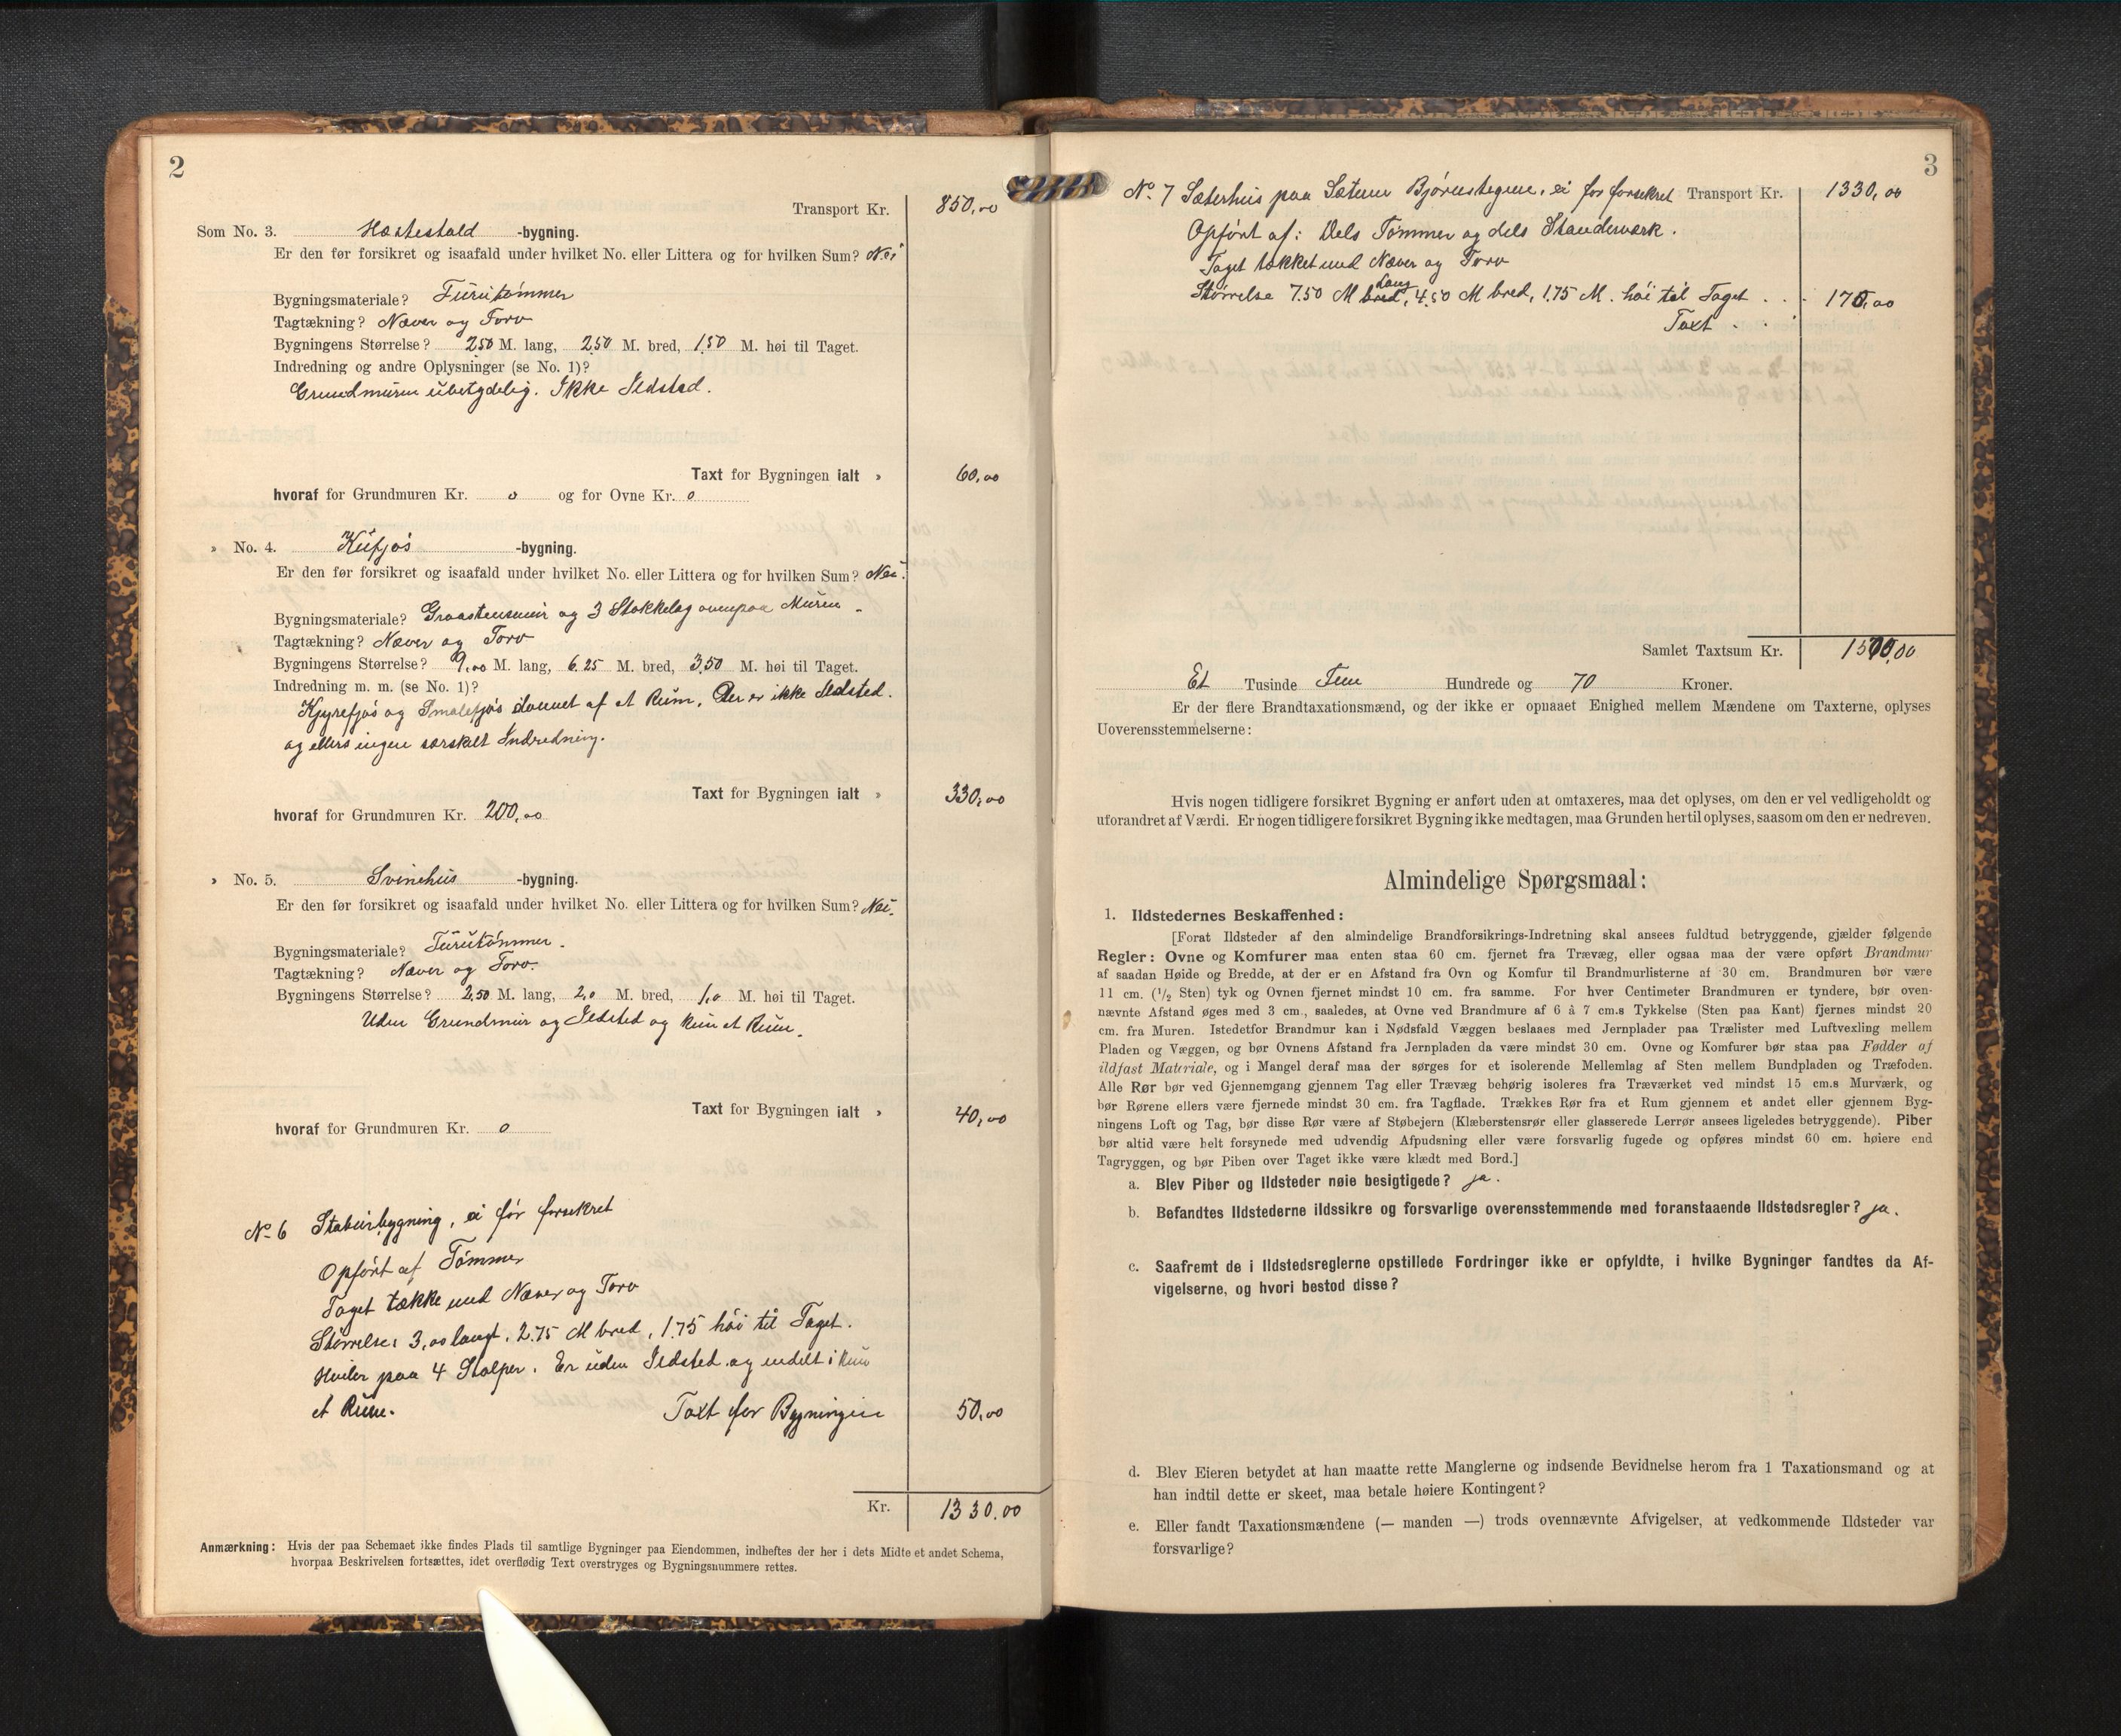 2
Transport Kr. 850,00
Som No. 3. Hestestald -bygning.
Er den før forsikret og isaafald under hvilket No. eller Littera og for hvilken Sum? Nei
Bygningsmateriale? Furutømmer
Tagtækning? Næver og Torv
Bygningens Størrelse? 2.50 M. lang, 2.50 M. bred, 1.50 M. høi til Taget.
Indredning og andre Oplysninger (se No. 1)?
Grundmuren ubetydelig. Ikke Ildsted.
Taxt for Bygningen ialt » 60,00
hvoraf for Grundmuren Kr. 0 og for Ovne Kr. 0
» No. 4. Kufjøs -bygning.
Er den før forsikret og isaafald under hvilket No. eller Littera og for hvilken Sum? Nei.
Bygningsmateriale? Graastensmur og 3 Stokkelag ovenpaa Muren.
Tagtækning? Næver og Torv
Bygningens Størrelse? 9,00 M. lang, 6.25 M. bred, 3.50 M. høi til Taget.
Indredning m. m. (se No. 1)?
Kjyrefjøs og Smalefjøs dannet af et Rum. Der er ikke Ildsted.
og ellers ingen særskilt Indredning.
Taxt for Bygningen ialt » 330,00
hvoraf for Grundmuren Kr. 200,00
» No. 5. Svinehus -bygning.
Er den før forsikret og isaafald under hvilket No. eller Littera og for hvilken Sum? Nei.
Bygningsmateriale? Furutømmer.
Tagtækning? Næver og Torv.
Bygningens Størrelse? 2.50 M. lang, 2,0 M. bred, 1,0 M. høi til Taget.
Uden Grundmur og Ildsted og kun et Rum.
Taxt for Bygningen ialt » 40,00
hvoraf for Grundmuren Kr. 0
No 6 Stabursbygning, ei før forsekret
Opført af Tømmer
Taget tække med Næver og Torv
Størrelse: 3,00 langt, 2.75 M bred, 1.75 høi til Taget.
Hviler paa 4 Stolper. Er uden Ildsted og indelt i kun
et Rum. Taxt for Bygningen 50,00
Kr. 1330.00
Anmærkning: Hvis der paa Schemaet ikke findes Plads til samtlige Bygninger paa Eiendommen, indheftes der her i dets Midte et andet Schema,
hvorpaa Beskrivelsen fortsættes, idet overflødig Text overstryges og Bygningsnummere rettes.
3
No. 7 Sæterhus paa Sæteren Bjørnestegene, ei før forsekret Transport Kr. 1330,00
Opført af: Dels Tømmer og dels Standerværk.
Taget tækket med Næver og Torv
Størrelse 7.50 M bred lang, 4.50 M bred, 1.75 M. høi til Taget . . . 170,00
Taxt . . .
Samlet Taxtsum Kr. 1500,00
Et Tusinde Fem Hundrede og 70 Kroner.
Er der flere Brandtaxationsmænd, og der ikke er opnaaet Enighed mellem Mændene om Taxterne, oplyses
Uoverensstemmelserne:
Hvis nogen tidligere forsikret Bygning er anført uden at omtaxeres, maa det oplyses, om den er vel vedligeholdt og
uforandret af Værdi. Er nogen tidligere forsikret Bygning ikke medtagen, maa Grunden hertil oplyses, saasom om den er nedreven.
Almindelige Spørgsmaal:
1. Ildstedernes Beskaffenhed:
[Forat Ildsteder af den almindelige Brandforsikrings-Indretning skal ansees fuldtud betryggende, gjælder følgende
Regler: Ovne og Komfurer maa enten staa 60 cm. fjernet fra Trævæg, eller ogsaa maa der være opført Brandmur
af saadan Høide og Bredde, at der er en Afstand fra Ovn og Komfur til Brandmurlisterne af 30 cm. Brandmuren bør være
11 cm. (1/2 Sten) tyk og Ovnen fjernet mindst 10 cm. fra samme. For hver Centimeter Brandmuren er tyndere, bør oven-
nævnte Afstand øges med 3 cm., saaledes, at Ovne ved Brandmure af 6 à 7 cm.s Tykkelse (Sten paa Kant) fjernes mindst 20
cm. fra Muren. Istedetfor Brandmur kan i Nødsfald Væggen beslaaes med Jernplader paa Trælister med Luftvexling mellem
Pladen og Væggen, og bør Ovnens Afstand fra Jernpladen da være mindst 30 cm. Ovne og Komfurer bør staa paa Fødder af
ildfast Materiale, og i Mangel deraf maa der sørges for et isolerende Mellemlag af Sten mellem Bundpladen og Træfoden.
Alle Rør bør ved Gjennemgang gjennem Tag eller Trævæg behørig isoleres fra Træværket ved mindst 15 cm.s Murværk, og
bør Rørene ellers være fjernede mindst 30 cm. fra Tagflade. Trækkes Rør fra et Rum gjennem et andet eller gjennem Byg-
ningens Loft og Tag, bør disse Rør være af Støbejern (Klæberstensrør eller glasserede Lerrør ansees ligeledes betryggende). Piber
bør altid være helt forsynede med udvendig Afpudsning eller være forsvarlig fugede og opføres mindst 60 cm. høiere end
Tagryggen, og bør Piben over Taget ikke være klædt med Bord.]
a. Blev Piber og Ildsteder nøie besigtigede? ja.
b. Befandtes Ildstederne ildssikre og forsvarlige overensstemmende med foranstaaende Ildstedsregler? ja.
c. Saafremt de i Ildstedsreglerne opstillede Fordringer ikke er opfyldte, i hvilke Bygninger fandtes da Af-
vigelserne, og hvori bestod disse?
d. Blev Eieren betydet at han maatte rette Manglerne og indsende Bevidnelse herom fra 1 Taxationsmand og at
han indtil dette er skeet, maa betale høiere Kontingent?
e. Eller fandt Taxationsmændene (— manden —) trods ovennævnte Afvigelser, at vedkommende Ildsteder var
forsvarlige?